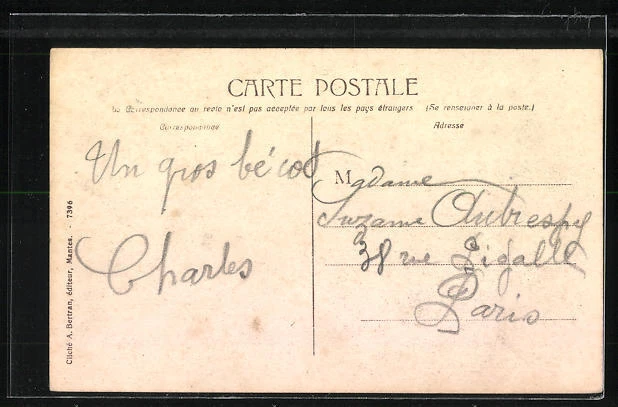 CARTE POSTALE
La Correspondance au recto n'est pas acceptée par tous les pays étrangers (Se renseigner à la poste.)
Correspondance
Adresse
Un gros bécot
Charles
Madame
Suzanne Aubrespy
38 rue Pigalle
Paris
Cliché A. Bertran, éditeur, Mantes. - 7396